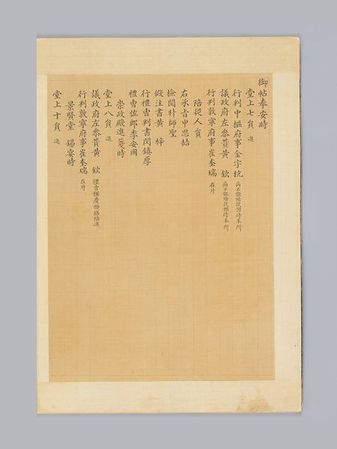 御帖奉安時
堂上七員 進
行判中樞府事金宇杭
議政府左參贊黃 欽
行判敦寧府事崔奎瑞 在外
陪從人員
右承旨申思喆
檢閱朴師聖
假注書黃 梓
行禮曹判書閔鎭厚
禮曹佐郎李安國
崇政殿進箋時
堂上八員 進
議政府左參贊黃 欽
行判敦寧府事崔奎瑞 在外
景賢堂 錫宴時
堂上十員 進